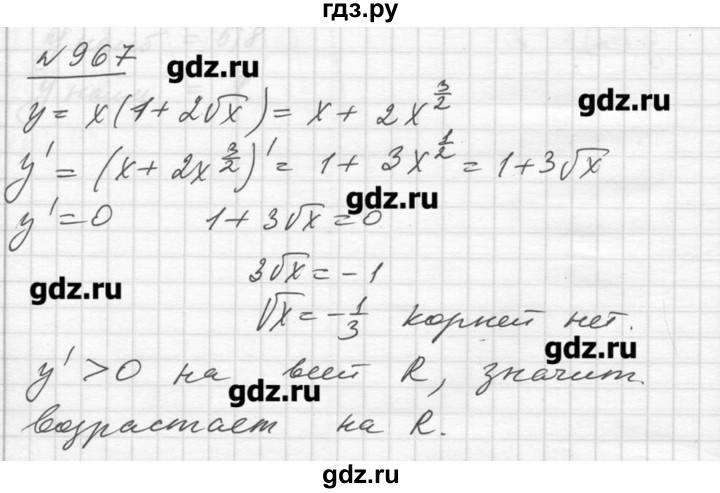 гдз.ру
№967
gdz.ru
y = x(1 + 2√x) = x + 2x^(3/2)
gdz.ru
y' = (x + 2x^(3/2))' = 1 + 3x^(1/2) = 1 + 3√x
gdz.ru
y' = 0 1 + 3√x = 0
3√x = -1
gdz.ru
√x = -1/3 корней нет.
gdz.ru
y' > 0 на всей R, значит
gdz.ru
возрастает на R.
gdz.ru